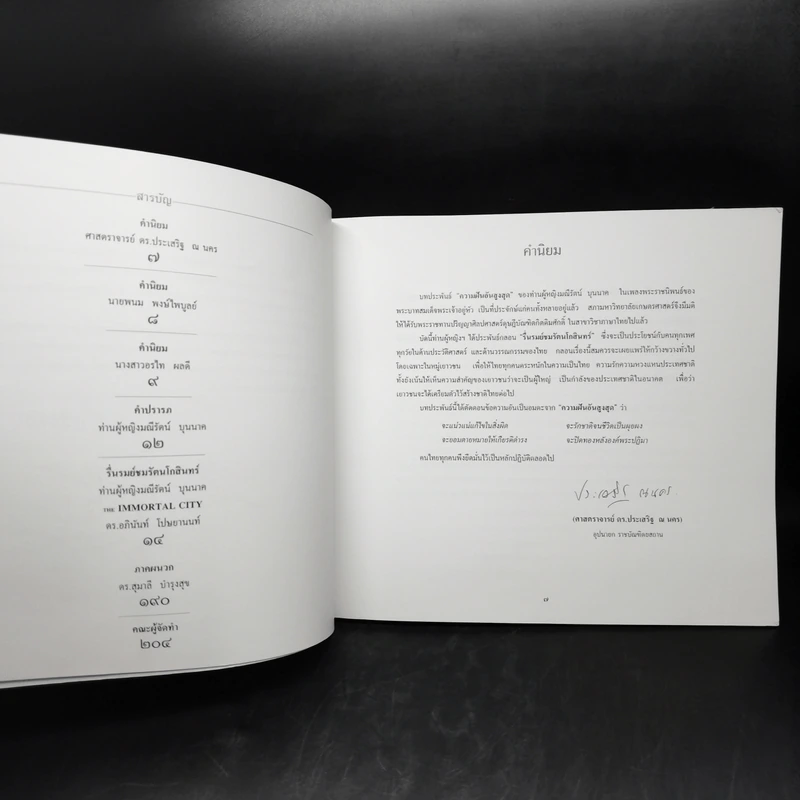 สารบัญ
คำนิยม
ศาสตราจารย์ ดร.ประเสริฐ ณ นคร
๗
คำนิยม
นายพนม พงษ์ไพบูลย์
๘
คำนิยม
นางสาวอรไท ผลดี
๙
คำปรารภ
ท่านผู้หญิงมณีรัตน์ บุนนาค
๑๒
รื่นรมย์ชมรัตนโกสินทร์
ท่านผู้หญิงมณีรัตน์ บุนนาค
THE IMMORTAL CITY
ดร.อภินันท์ โปษยานนท์
๑๔
ภาคผนวก
ดร.สุมาลี บำรุงสุข
๑๙๐
คณะผู้จัดทำ
๒๐๔
คำนิยม
บทประพันธ์ "ความฝันอันสูงสุด" ของท่านผู้หญิงมณีรัตน์ บุนนาค ในเพลงพระราชนิพนธ์ของ
พระบาทสมเด็จพระเจ้าอยู่หัว เป็นที่ประจักษ์แก่คนทั้งหลายอยู่แล้ว สภามหาวิทยาลัยเกษตรศาสตร์จึงมีมติ
ให้ได้รับพระราชทานปริญญาศิลปศาสตรดุษฎีบัณฑิตกิตติมศักดิ์ ในสาขาวิชาภาษาไทยไปแล้ว
บัดนี้ท่านผู้หญิงฯ ได้ประพันธ์กลอน "รื่นรมย์ชมรัตนโกสินทร์" ซึ่งจะเป็นประโยชน์กับคนทุกเพศ
ทุกวัยในด้านประวัติศาสตร์ และด้านวรรณกรรมของไทย กลอนเรื่องนี้สมควรจะเผยแพร่ให้กว้างขวางทั่วไป
โดยเฉพาะในหมู่เยาวชน เพื่อให้ไทยทุกคนตระหนักในความเป็นไทย ความรักความหวงแหนประเทศชาติ
ทั้งยังเน้นให้เห็นความสำคัญของเยาวชนว่าจะเป็นผู้ใหญ่ เป็นกำลังของประเทศชาติในอนาคต เพื่อว่า
เยาวชนจะได้เตรียมตัวไว้สร้างชาติไทยต่อไป
บทประพันธ์นี้ได้ตัดตอนข้อความอันเป็นอมตะจาก "ความฝันอันสูงสุด" ว่า
จะแน่วแน่แก้ไขในสิ่งผิด จะรักชาติจนชีวิตเป็นผุยผง
จะยอมตายหมายให้เกียรติดำรง จะปิดทองหลังองค์พระปฏิมา
คนไทยทุกคนพึงยึดมั่นไว้เป็นหลักปฏิบัติตลอดไป
ประเสริฐ ณ นคร
(ศาสตราจารย์ ดร.ประเสริฐ ณ นคร)
อุปนายก ราชบัณฑิตยสถาน
๗